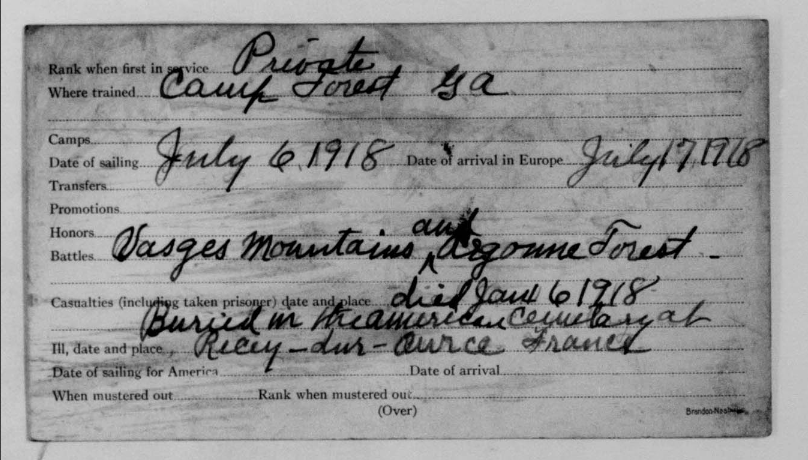 Rank when first in service Private
Where trained Camp Forest Ga
Camps
Date of sailing July 6 1918 Date of arrival in Europe July 17 1918
Transfers
Promotions
Honors
Battles Vasges Mountains and Argonne Forest -
Casualties (including taken prisoner) date and place died Jan 6 1918
Buried in the american Cemetary at
Ill, date and place Recey-sur-Ource France
Date of sailing for America Date of arrival
When mustered out Rank when mustered out
(Over)